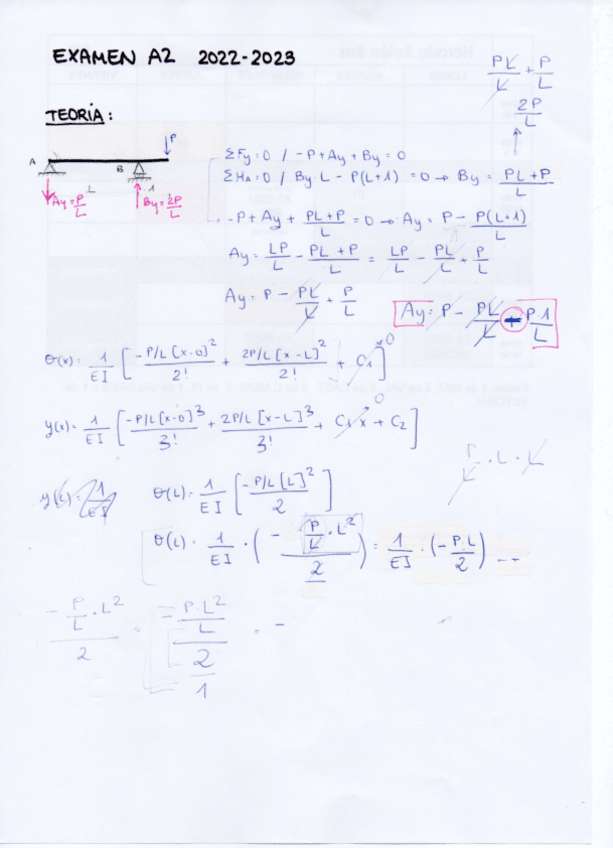 EXAMEN A2 2022-2023
PL/L + P/L
2P/L
TEORÍA:
A B P
L 1
Ay=P/L By=2P/L
ΣFy=0 / -P+Ay+By=0
ΣMA=0 / By·L - P(L+1) = 0 → By = (PL+P)/L
-P + Ay + (PL+P)/L = 0 → Ay = P - P(L+1)/L
Ay = LP/L - (PL+P)/L = LP/L - PL/L + P/L
Ay = P - PL/L + P/L
Ay = P - PL/L + P·1/L
θ(x) = 1/EI [ (-P/L [x-0]²)/2! + (2P/L [x-L]²)/2! + C1 ] 0
y(x) = 1/EI [ (-P/L [x-0]³)/3! + (2P/L [x-L]³)/3! + C1 x + C2 ] 0
· L · L
y(L) = 1/EI θ(L) = 1/EI [ (-P/L [L]²)/2 ]
θ(L) = 1/EI · ( (- P/L · L²)/2 ) = 1/EI · (- P·L/2) --
(- P/L · L²)/2 = (- P·L²/L)/(2/1) = -